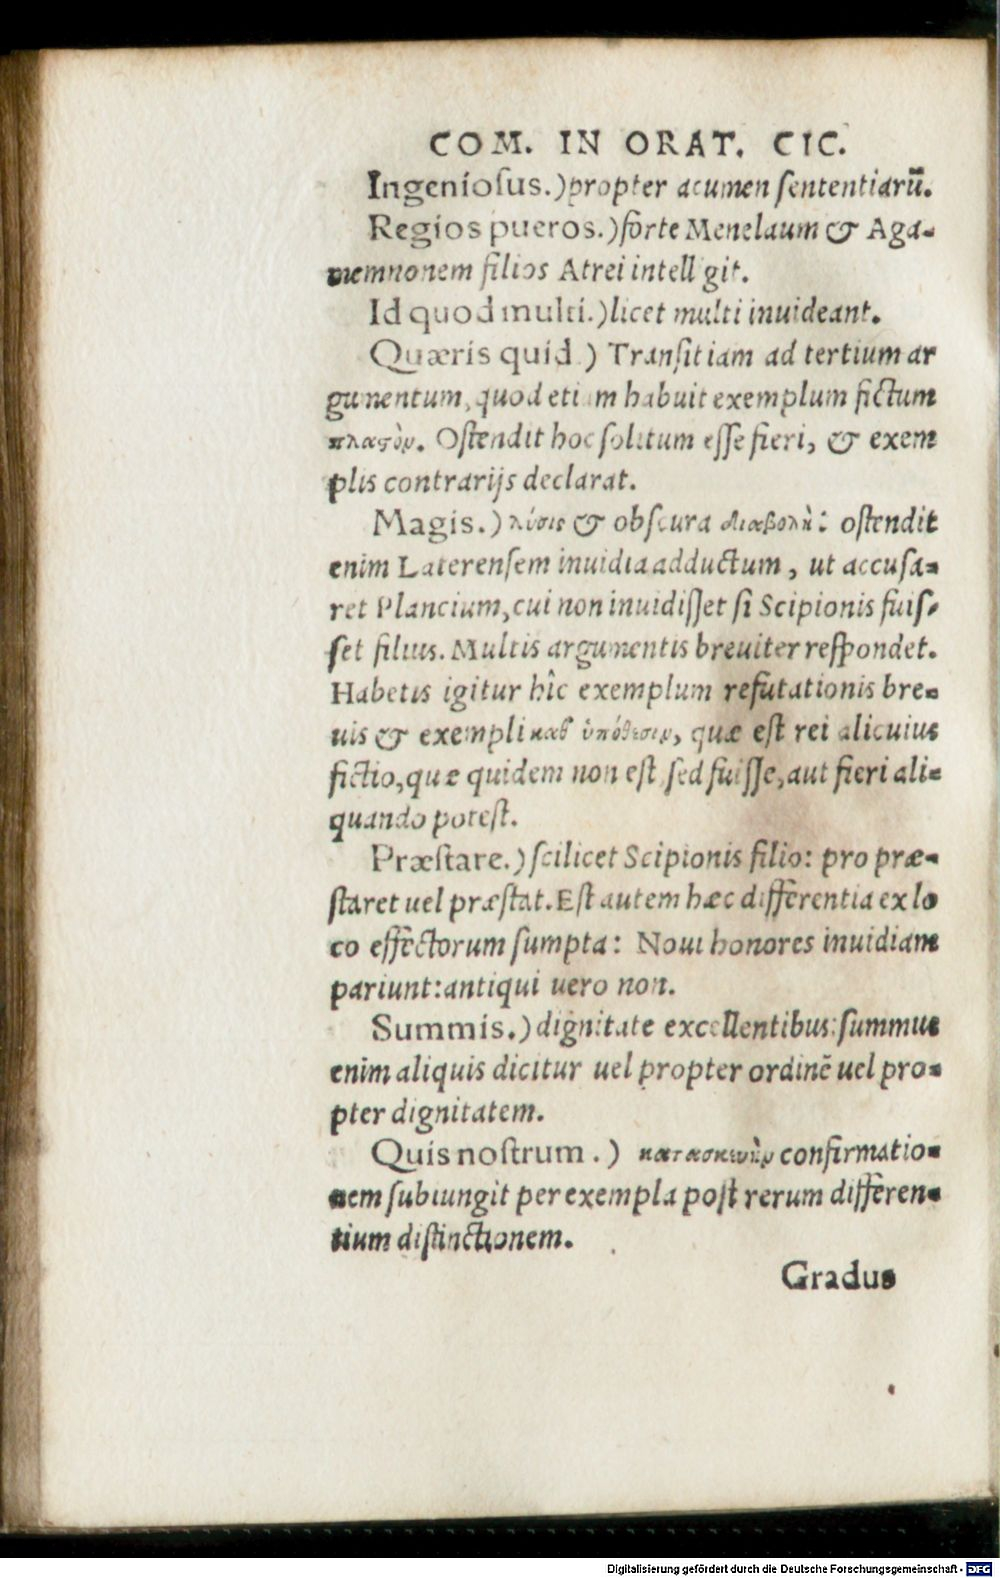 COM. IN ORAT. CIC.
Ingeniosus.) propter acumen sententiarū.
Regios pueros.) forte Menelaum & Aga-
memnonem filios Atrei intelligit.
Id quod multi.) licet multi inuideant.
Quæris quid.) Transit iam ad tertium ar
gumentum, quod etiam habuit exemplum fictum
πλαστὸν. Ostendit hoc solitum esse fieri, & exem
plis contrarijs declarat.
Magis.) λύσις & obscura διαβολὴ: ostendit
enim Laterensem inuidia adductum, ut accusa-
ret Plancium, cui non inuidisset si Scipionis fuis-
set filius. Multis argumentis breuiter respondet.
Habetis igitur hîc exemplum refutationis bre-
uis & exempli καθ' ὑπόθεσιν, quæ est rei alicuius
fictio, quæ quidem non est, sed fuisse, aut fieri ali-
quando potest.
Præstare.) scilicet Scipionis filio: pro præ-
staret uel præstat. Est autem hæc differentia ex lo
co effectorum sumpta: Noui honores inuidiam
pariunt: antiqui uero non.
Summis.) dignitate excellentibus: summus
enim aliquis dicitur uel propter ordinē uel pro-
pter dignitatem.
Quis nostrum.) κατασκευὴν confirmatio-
nem subiungit per exempla post rerum differen-
tium distinctionem.
Gradus
Digitalisierung gefördert durch die Deutsche Forschungsgemeinschaft - DFG